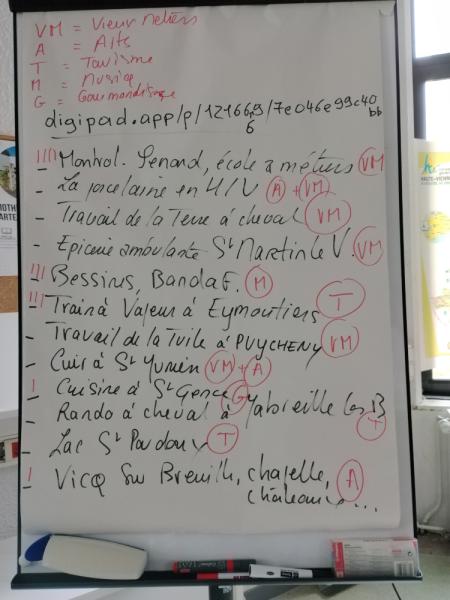 VM = Vieux Métiers
A = Arts
T = Tourisme
M = Musique
G = Gourmandisque
digipad.app/p/1216663/7e046e99c40
6 bb
|||| - Montrol. Senard, école & métiers VM
- La porcelaine en H/V A + VM
- Travail de la Terre à cheval VM
- Epicerie ambulante St Martin le V. VM
||| - Bessines, Banda F. M
||| - Train à Vapeur à Eymoutiers T
- Travail de la Tuile à PUYCHENY VM
- Cuir à St Junien VM + A
| - Cuisine à St Gence G
- Rando à cheval à Jabreille les B T
- Lac St Pardoux T
| - Vicq Sur Breuilh, chapelle, A
châteaux...
HAUTE-VIENNE